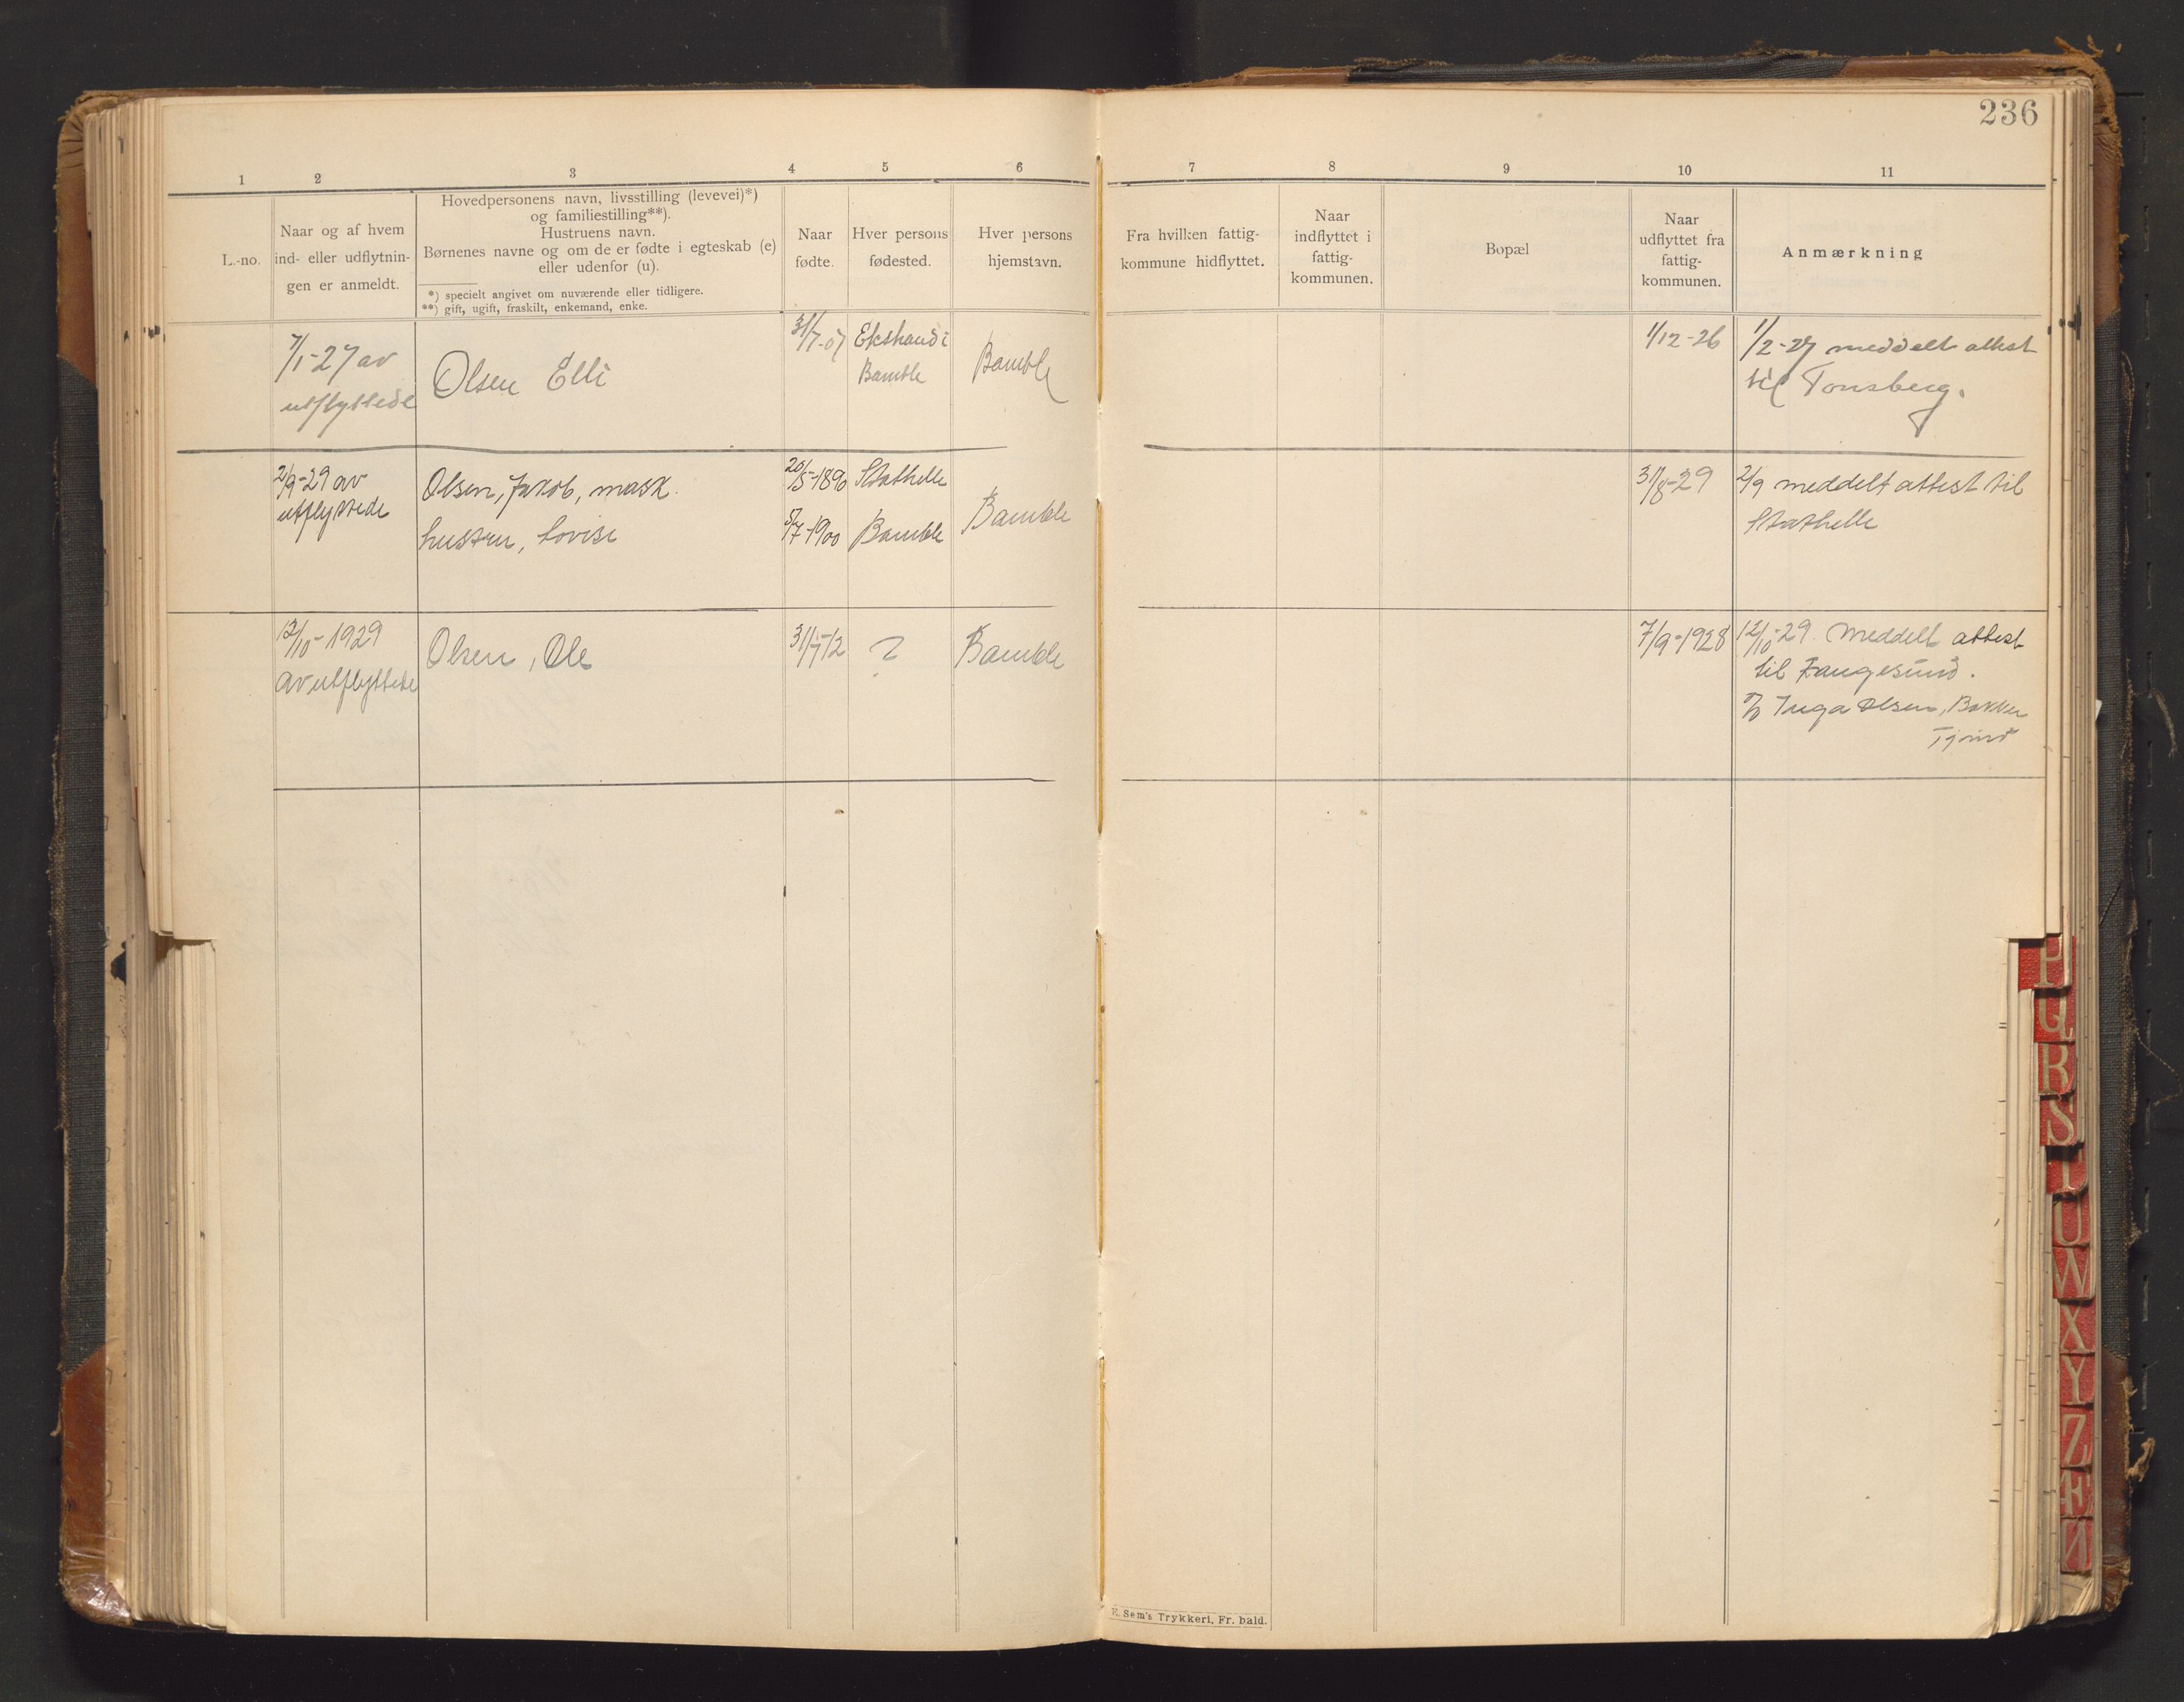 236
1 2 3 4 5 6 7 8 9 10 11
L.-no.
Naar og af hvem
ind- eller udflytnin-
gen er anmeldt.
Hovedpersonens navn, livsstilling (levevei)*)
og familiestilling**).
Hustruens navn.
Børnenes navne og om de er fødte i egteskab (e)
eller udenfor (u).
*) specielt angivet om nuværende eller tidligere.
**) gift, ugift, fraskilt, enkemand, enke.
Naar
fødte.
Hver persons
fødested.
Hver persons
hjemstavn.
Fra hvilken fattig-
kommune hidflyttet.
Naar
indflyttet i
fattig-
kommunen.
Bopæl
Naar
udflyttet fra
fattig-
kommunen.
Anmærkning
7/1-27 av
utflyttede
Olsen Elli
31/7-07
i
Bamble
Bamble
1/12-26
1/2-27 meddelt attest
til Tønsberg.
2/9-29 av
utflyttede
Olsen, Jakob, mask.
hustru, Lovise
20/5-1890
5/7-1900
Stathelle
Bamble
Bamble
31/8-29
2/9 meddelt attest til
Stathelle
12/10-1929
av utflyttede
Olsen, Ole
31/7-12
?
Bamble
7/9-1928
12/10-29. Meddelt attest
til Langesund.
Inga Olsen, Bakken
E. Sem's Trykkeri, Fr. hald.
P
Q
R
S
T
U
W
X
Y
Z
Æ